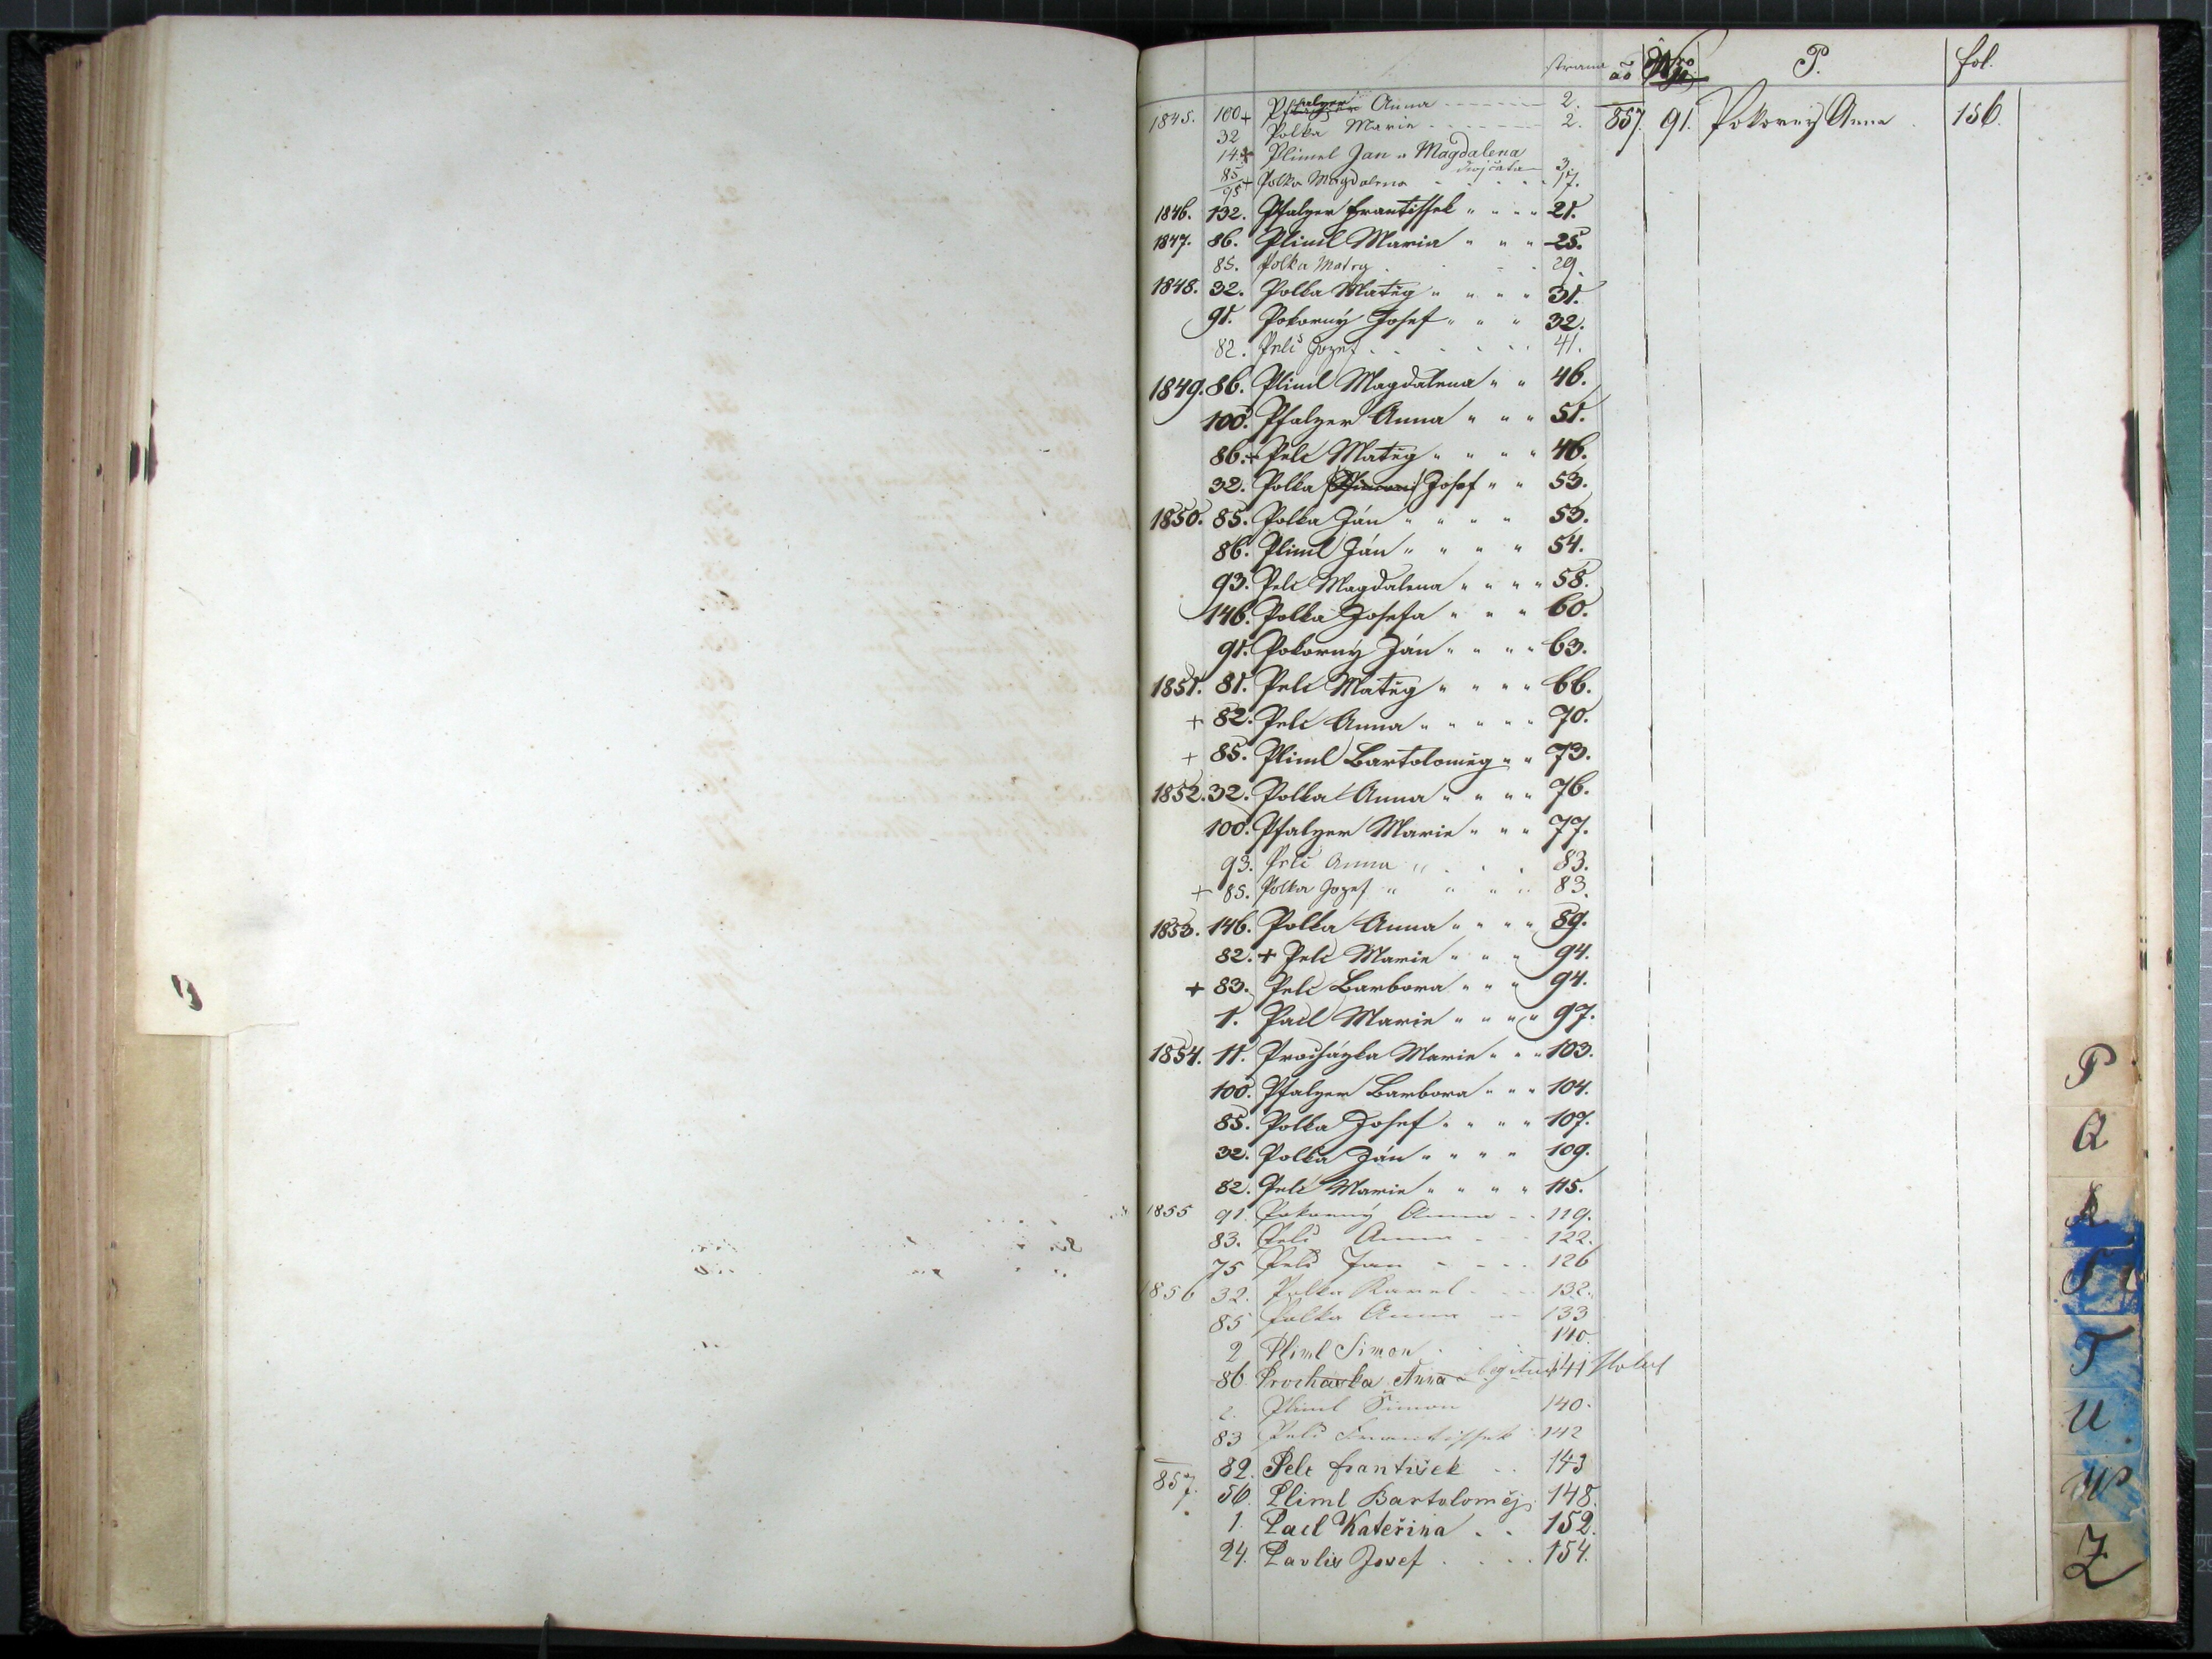 strana
1845. 100 + Pfalzer Anna 2.
32 Polka Marie 2.
14. + Plimel Jan a Magdalena
dvojčata 3.
85/95 + Polka Magdalena 17.
1846. 132. Pfalzer Frantissek " " " 21.
1847. 86. Pliml Maria " " " 25.
85. Polka Matěg 29.
1848. 32. Polka Matěg " " " " 31.
91. Pokorný Josef " " " 32.
82. Pelc Jozef 41.
1849. 86. Pliml Magdalena " " 46.
100. Pfalzer Anna " " " 51.
86. + Pelc Matěg " " " " 46.
32. Polka Josef " " 53.
1850. 85. Polka Ján " " " " 53.
86. Pliml Ján " " " " 54.
93. Pelc Magdalena " " " " 58.
146. Polka Josefa " " " 60.
91. Pokorný Ján " " " " 63.
1851. 81. Pelc Matěg " " " " 66.
+ 82. Pelc Anna " " " " " 70.
+ 85. Pliml Bartoloměg " " 73.
1852. 32. Polka Anna " " " " 76.
100. Pfalzer Marie " " " 77.
93. Pelc Anna " 83.
+ 85. Polka Jozef " " " " 83.
1853. 146. Polka Anna " " " " 89.
82. + Pelc Marie " " " 94.
+ 83. Pelc Barbora " " " 94.
1. Pacl Marie " " " " 97.
1854. 11. Procházka Marie " " " 103.
100. Pfalzer Barbora " " " 104.
85. Polka Josef " " " " 107.
32. Polka Ján " " " " 109.
82. Pelc Marie " " " " 115.
1855 91. Pokorný Anna 119.
83. Pelc Anna 122.
75 Pelc Jan 126
1856 32. Polka Karel 132.
85 Polka Anna 133
2 Pliml Simon 140.
86 Prochaska Anna 141
2. Pliml Šimon 140.
83 Pelc Frantissek 142
857. 82. Pelc František 143
56. Pliml Bartoloměj 148.
1. Pacl Kateřina 152.
24. Pavlis Josef 154.
ao Nro P. fol.
857. 91. Pokorný Anna 156.
P
Q
S
T
U
W
Z